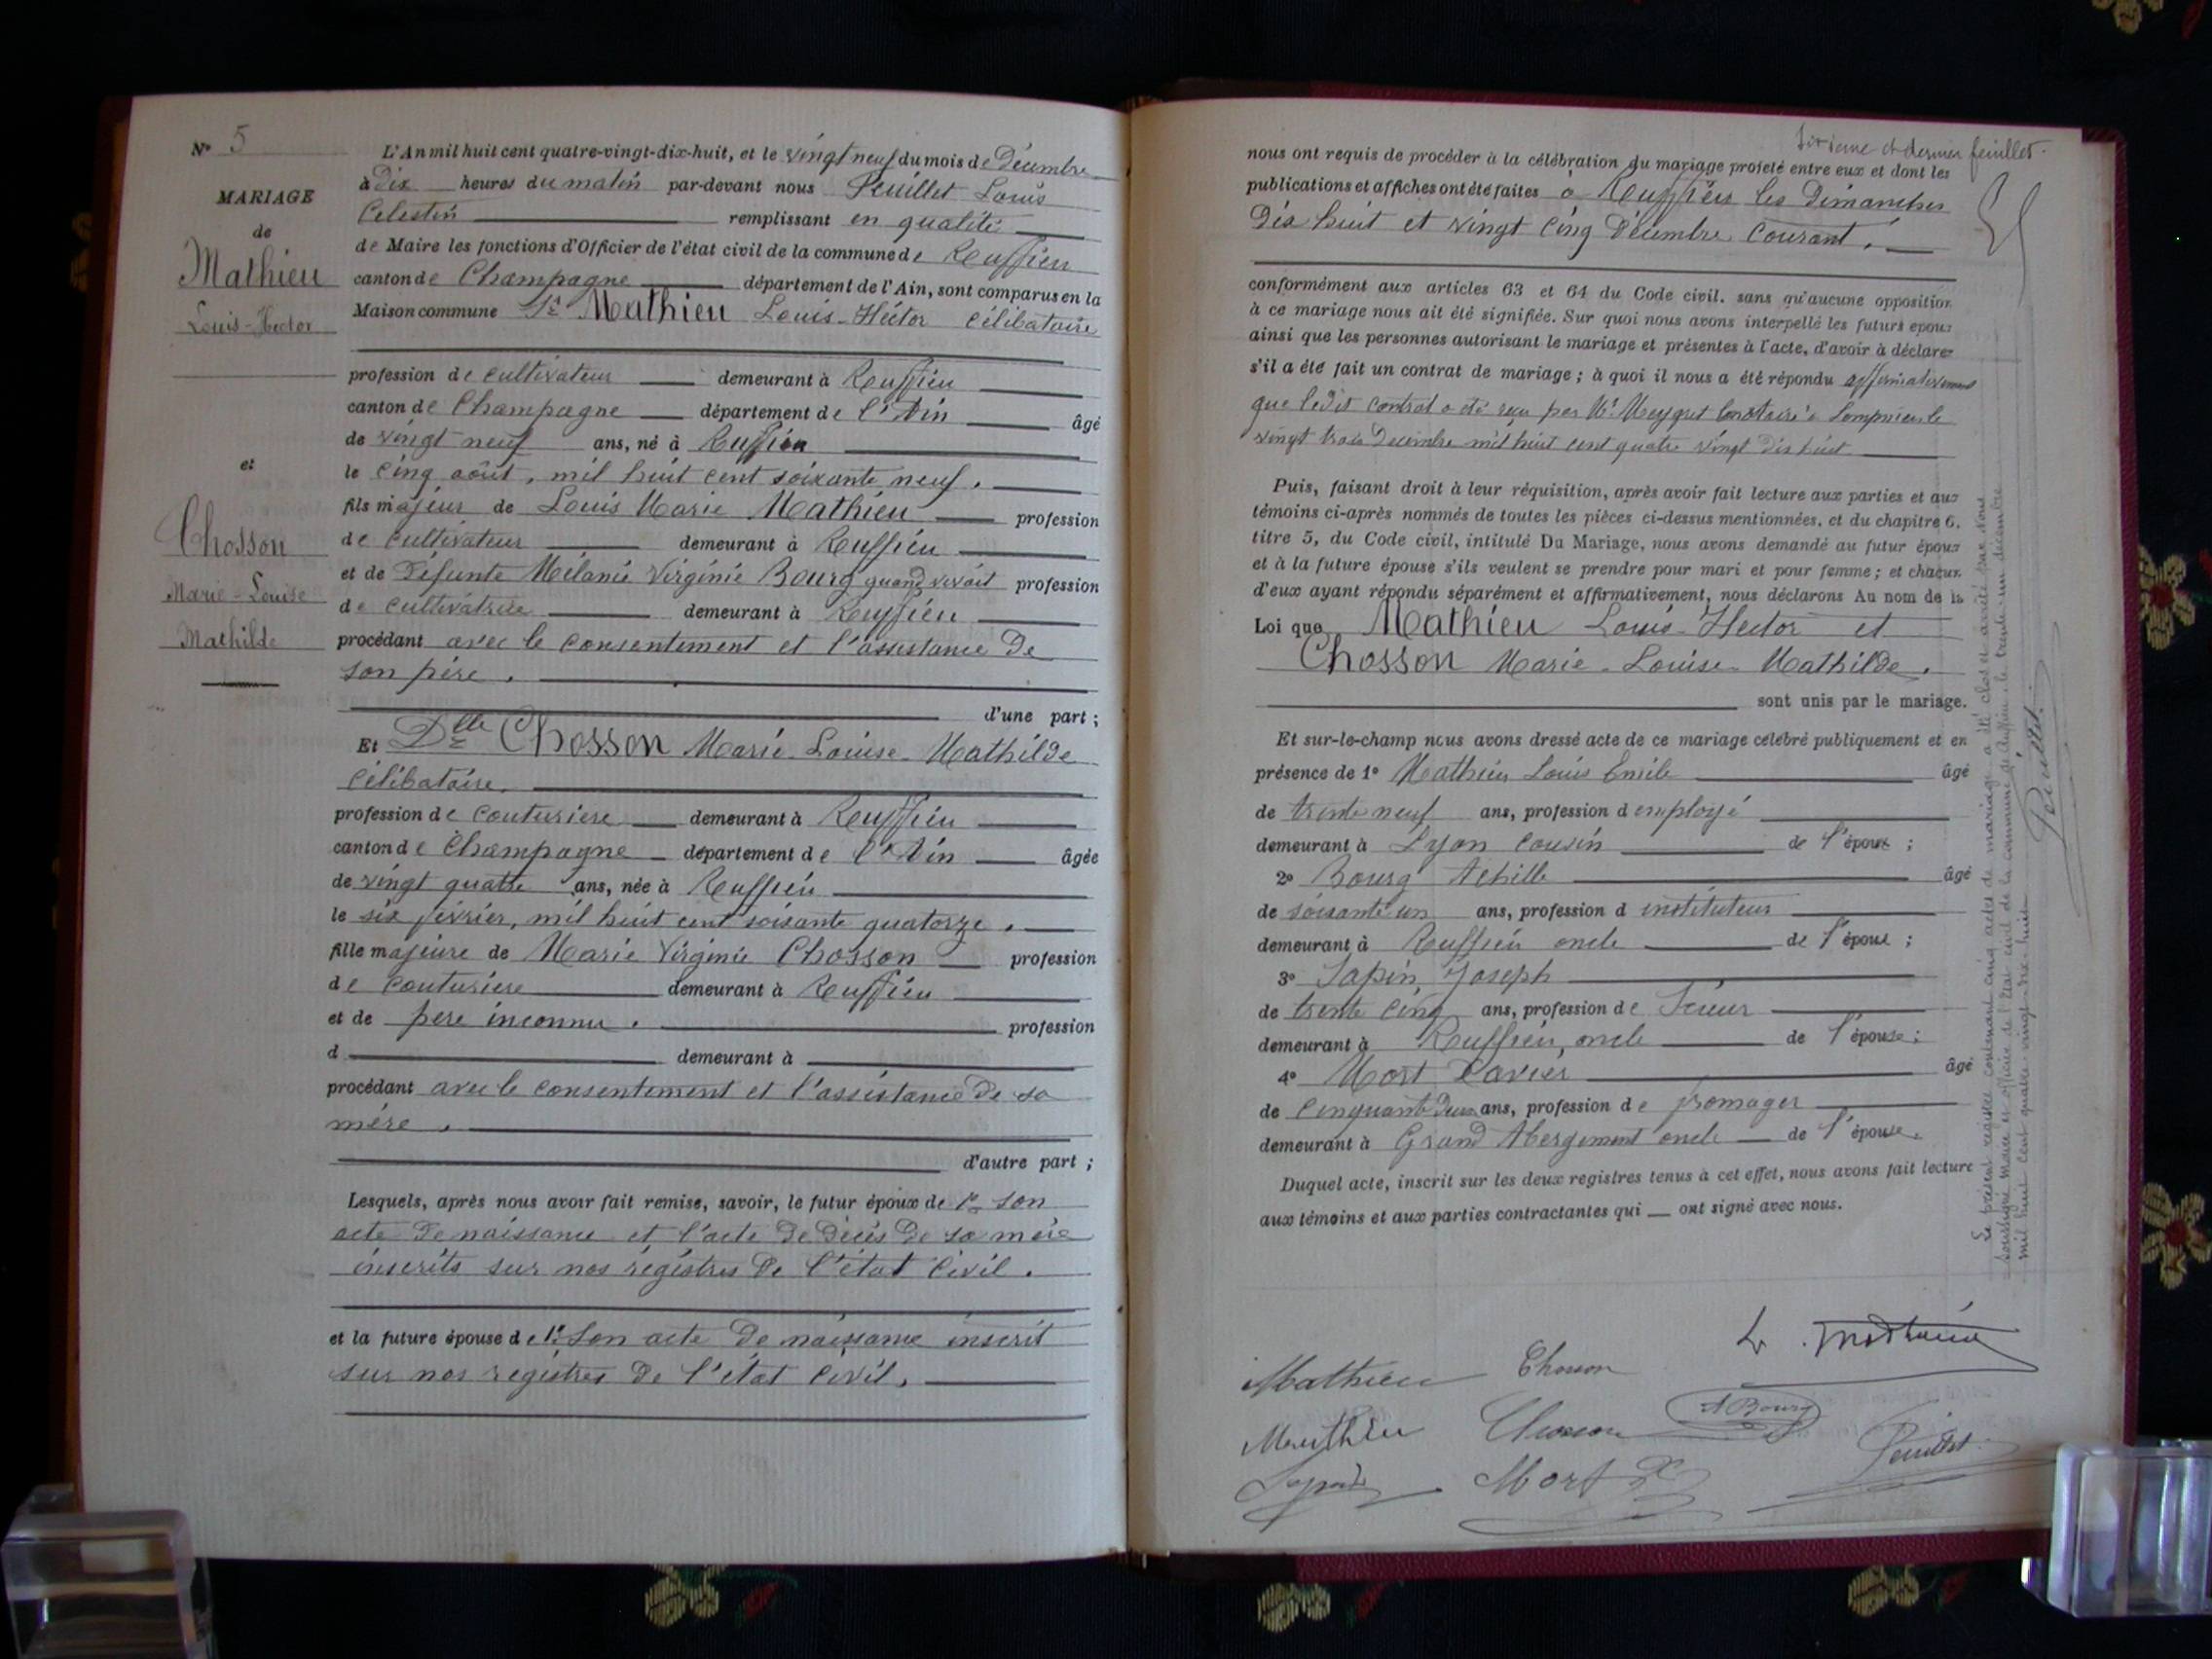 N° 5
MARIAGE
de
Mathieu
Louis-Hector
et
Chosson
Marie-Louise
Mathilde
L'An mil huit cent quatre-vingt-dix-huit, et le vingt neuf du mois de Décembre
à Dix heures du matin par-devant nous Peuillet Louis
Celestin remplissant en qualité
de Maire les fonctions d'Officier de l'état civil de la commune de Ruffieu
canton de Champagne département de l'Ain, sont comparus en la
Maison commune Sr Mathieu Louis-Héctor célibataire
profession de cultivateur demeurant à Ruffieu
canton de Champagne département de l'Ain âgé
de vingt neuf ans, né à Ruffieu
le cinq août, mil huit cent soixante neuf.
fils majeur de Louis Marie Mathieu profession
de cultivateur demeurant à Ruffieu
et de Défunte Mélanie Virginie Bourg quand vivait profession
de cultivatrice demeurant à Ruffieu
procédant avec le consentement et l'assistance de
son père.
d'une part ;
Et Dlle Chosson Marie-Louise-Mathilde
célibataire.
profession de couturiere demeurant à Ruffieu
canton de Champagne département de l'Ain âgée
de vingt quatre ans, née à Ruffieu
le six février, mil huit cent soixante quatorze.
fille majeure de Marie Virginie Chosson profession
de couturiere demeurant à Ruffieu
et de père inconnu. profession
d demeurant à
procédant avec le consentement et l'assistance de sa
mère.
d'autre part ;
Lesquels, après nous avoir fait remise, savoir, le futur époux de 1° son
acte de naissance et l'acte de décès de sa mère
inscrits sur nos régistres de l'état civil.
et la future épouse de 1° son acte de naissance inscrit
sur nos régistres de l'état civil.
Sixième et dernier feuillet.
nous ont requis de procéder à la célébration du mariage projeté entre eux et dont les
publications et affiches ont été faites à Ruffieu les Dimanches
Dix huit et vingt cinq Décembre courant.
conformément aux articles 63 et 64 du Code civil. sans qu'aucune opposition
à ce mariage nous ait été signifiée. Sur quoi nous avons interpellé les futurs epoux
ainsi que les personnes autorisant le mariage et présentes à l'acte, d'avoir à déclarer
s'il a été fait un contrat de mariage ; à quoi il nous a été répondu affirmativement
que ledit contrat a été reçu par Me Meygret notaire à Sompnieu le
vingt trois Decembre mil huit cent quatre vingt dix huit
Puis, faisant droit à leur réquisition, après avoir fait lecture aux parties et aux
témoins ci-après nommés de toutes les pièces ci-dessus mentionnées, et du chapitre 6.
titre 5, du Code civil, intitulé Du Mariage, nous avons demandé au futur époux
et à la future épouse s'ils veulent se prendre pour mari et pour femme ; et chacun
d'eux ayant répondu séparément et affirmativement, nous déclarons Au nom de la
Loi que Mathieu Louis-Hector et
Chosson Marie-Louise-Mathilde.
sont unis par le mariage.
Et sur-le-champ nous avons dressé acte de ce mariage célébré publiquement et en
présence de 1° Mathieu Louis Emile âgé
de trente neuf ans, profession d employé
demeurant à Lyon cousin de l'époux ;
2° Bourg Achille âgé
de soixante un ans, profession d instituteur
demeurant à Ruffieu oncle de l'époux ;
3° Sapin Joseph
de trente cinq ans, profession de Scieur
demeurant à Ruffieu, oncle de l'épouse ;
4° Mort Xavier âgé
de cinquante deux ans, profession de fromager
demeurant à Grand Abergement oncle de l'épouse.
Duquel acte, inscrit sur les deux registres tenus à cet effet, nous avons fait lecture
aux témoins et aux parties contractantes qui ont signé avec nous.
Le présent registre contenant cinq actes de mariage a été clos et arrêté par Nous
soussigné maire et officier de l'état civil de la commune de Ruffieu, le trente un décembre
mil huit cent quatre vingt dix-huit
Peuillet
L. Mathieu
Mathieu Chosson
A Bourg
Mathieu Chosson
Peuillet
Sapin Mort X